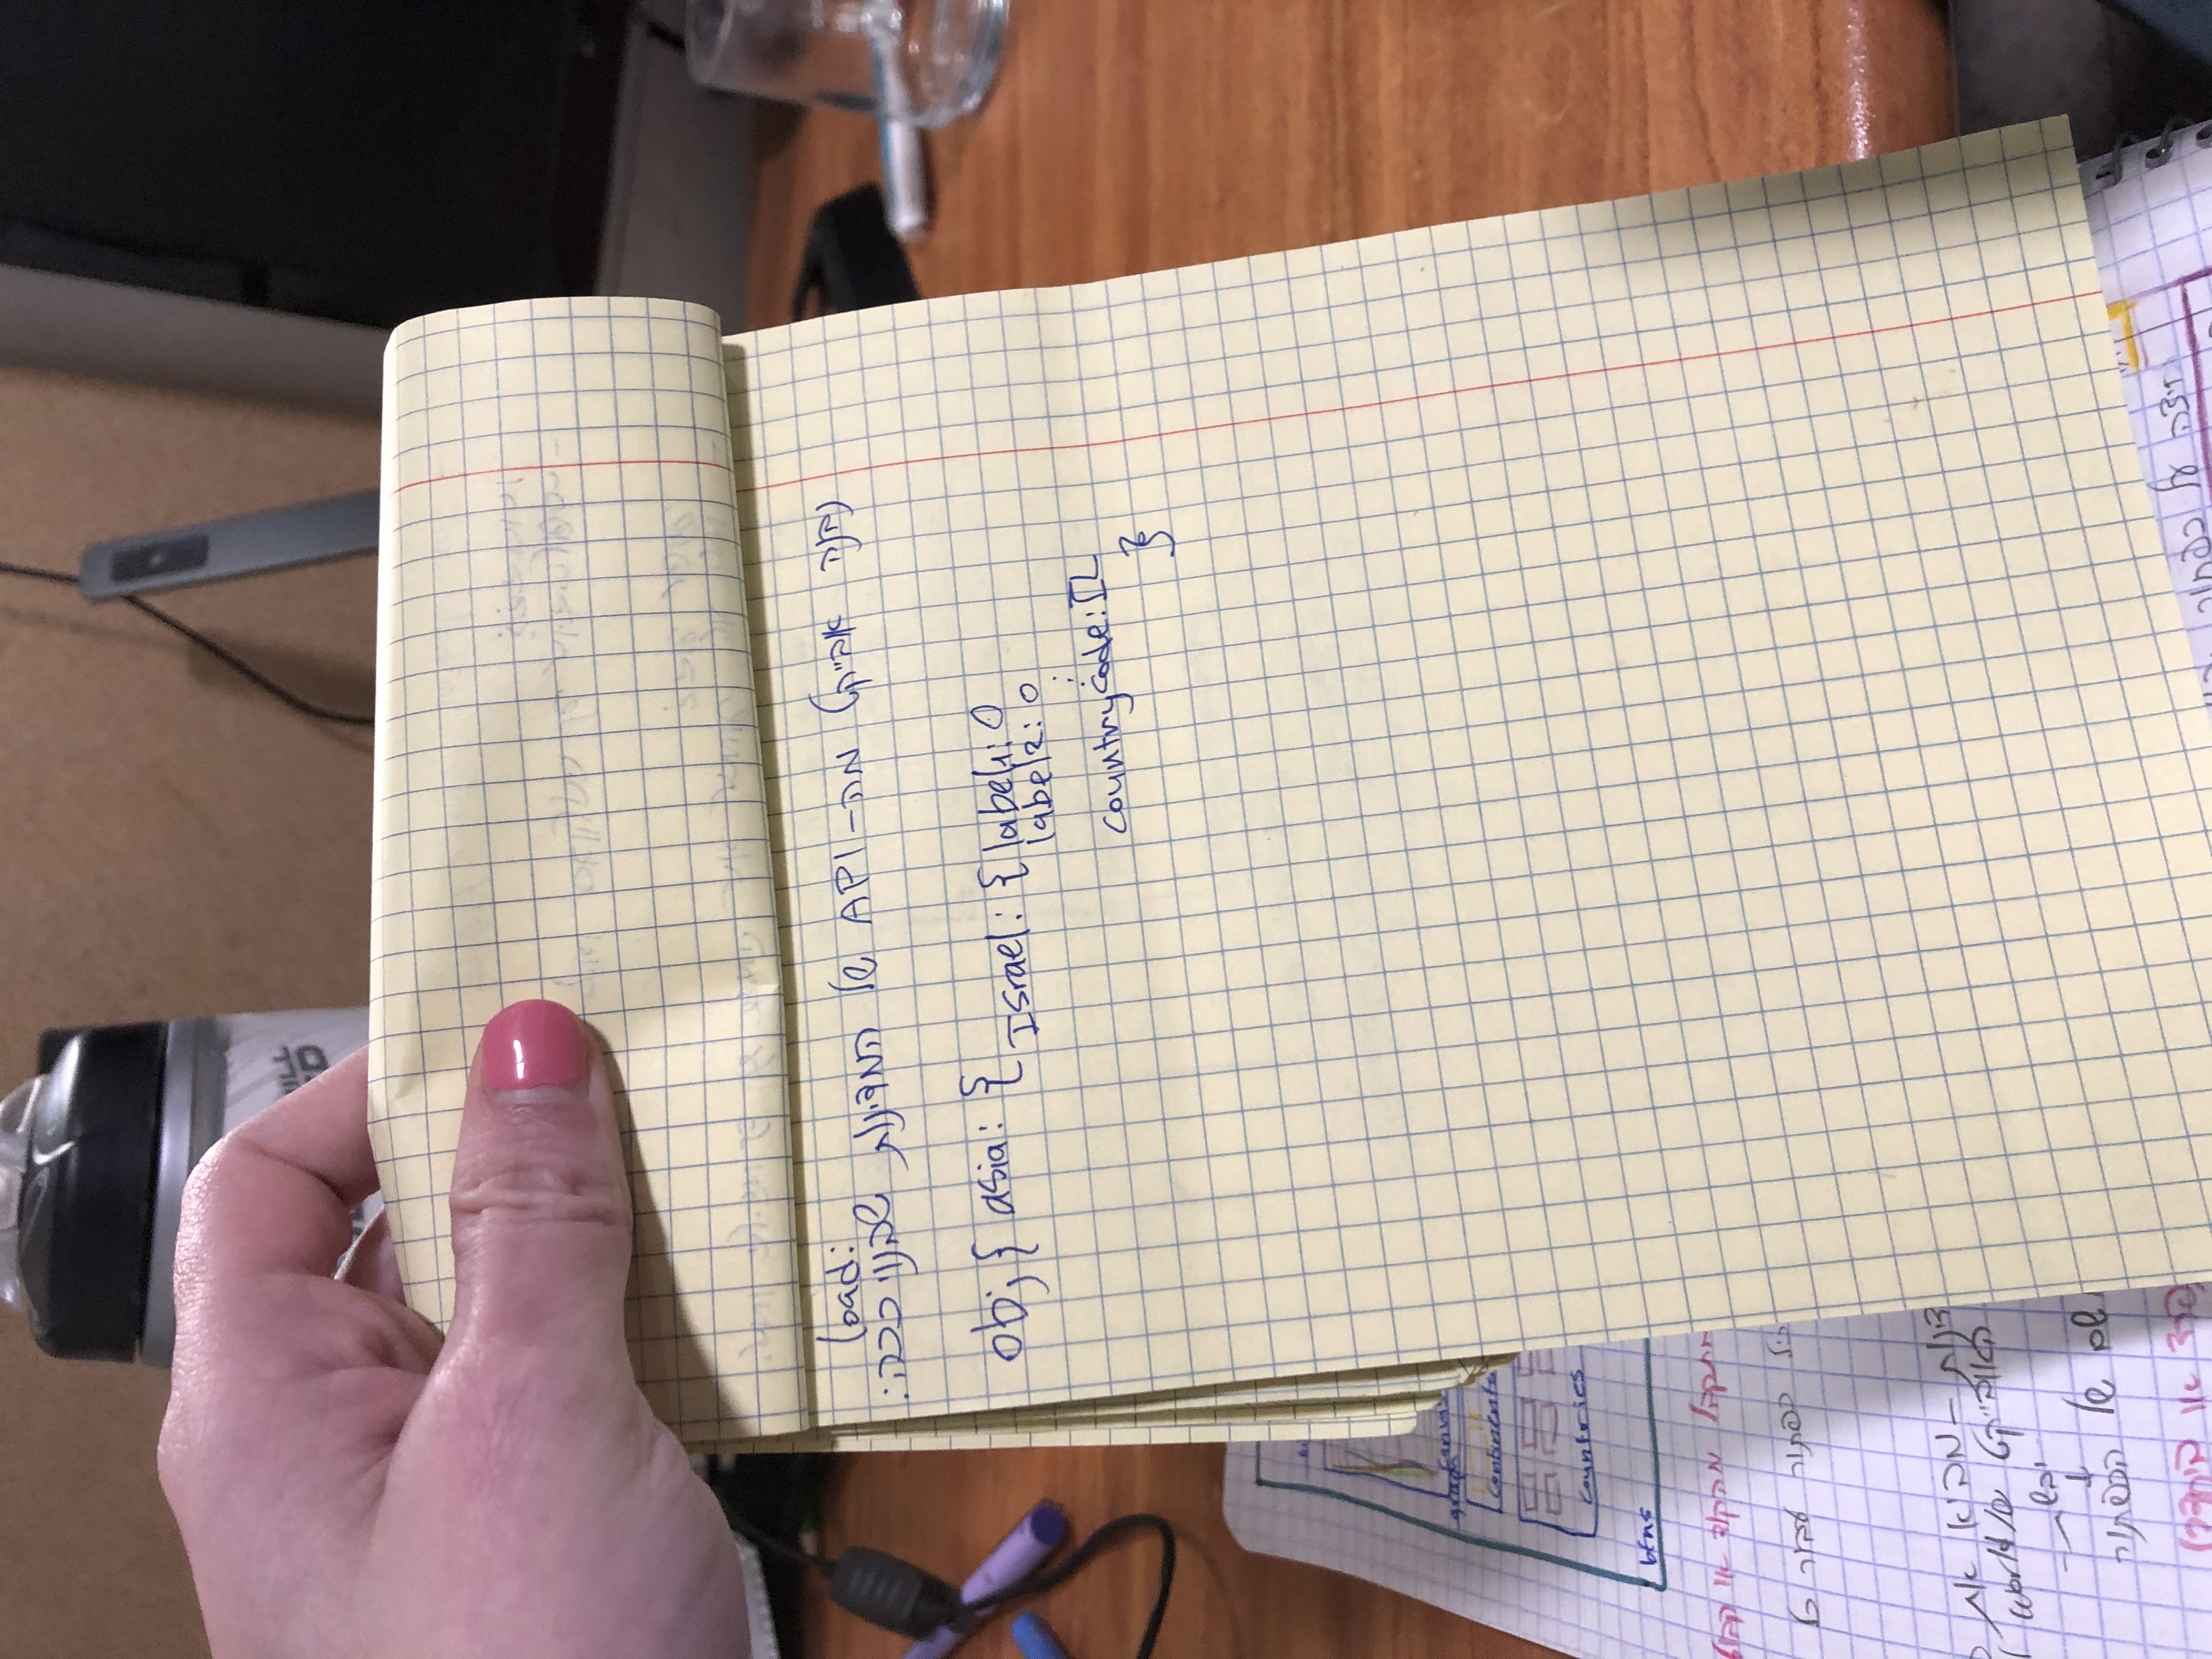 load:
נבנה אובייקט מה-API של המדינות שבנוי ככה:
obj { asia: { Israel: { label1: 0
label2: 0
:
countrycode: IL
}
canvas
graph
continents
countries
btns
מתקבל מהקוד או
כפתור עבור כל
מביא את
האובייקט של world
יבשת
↓
שם של הכפתור
על כפתור